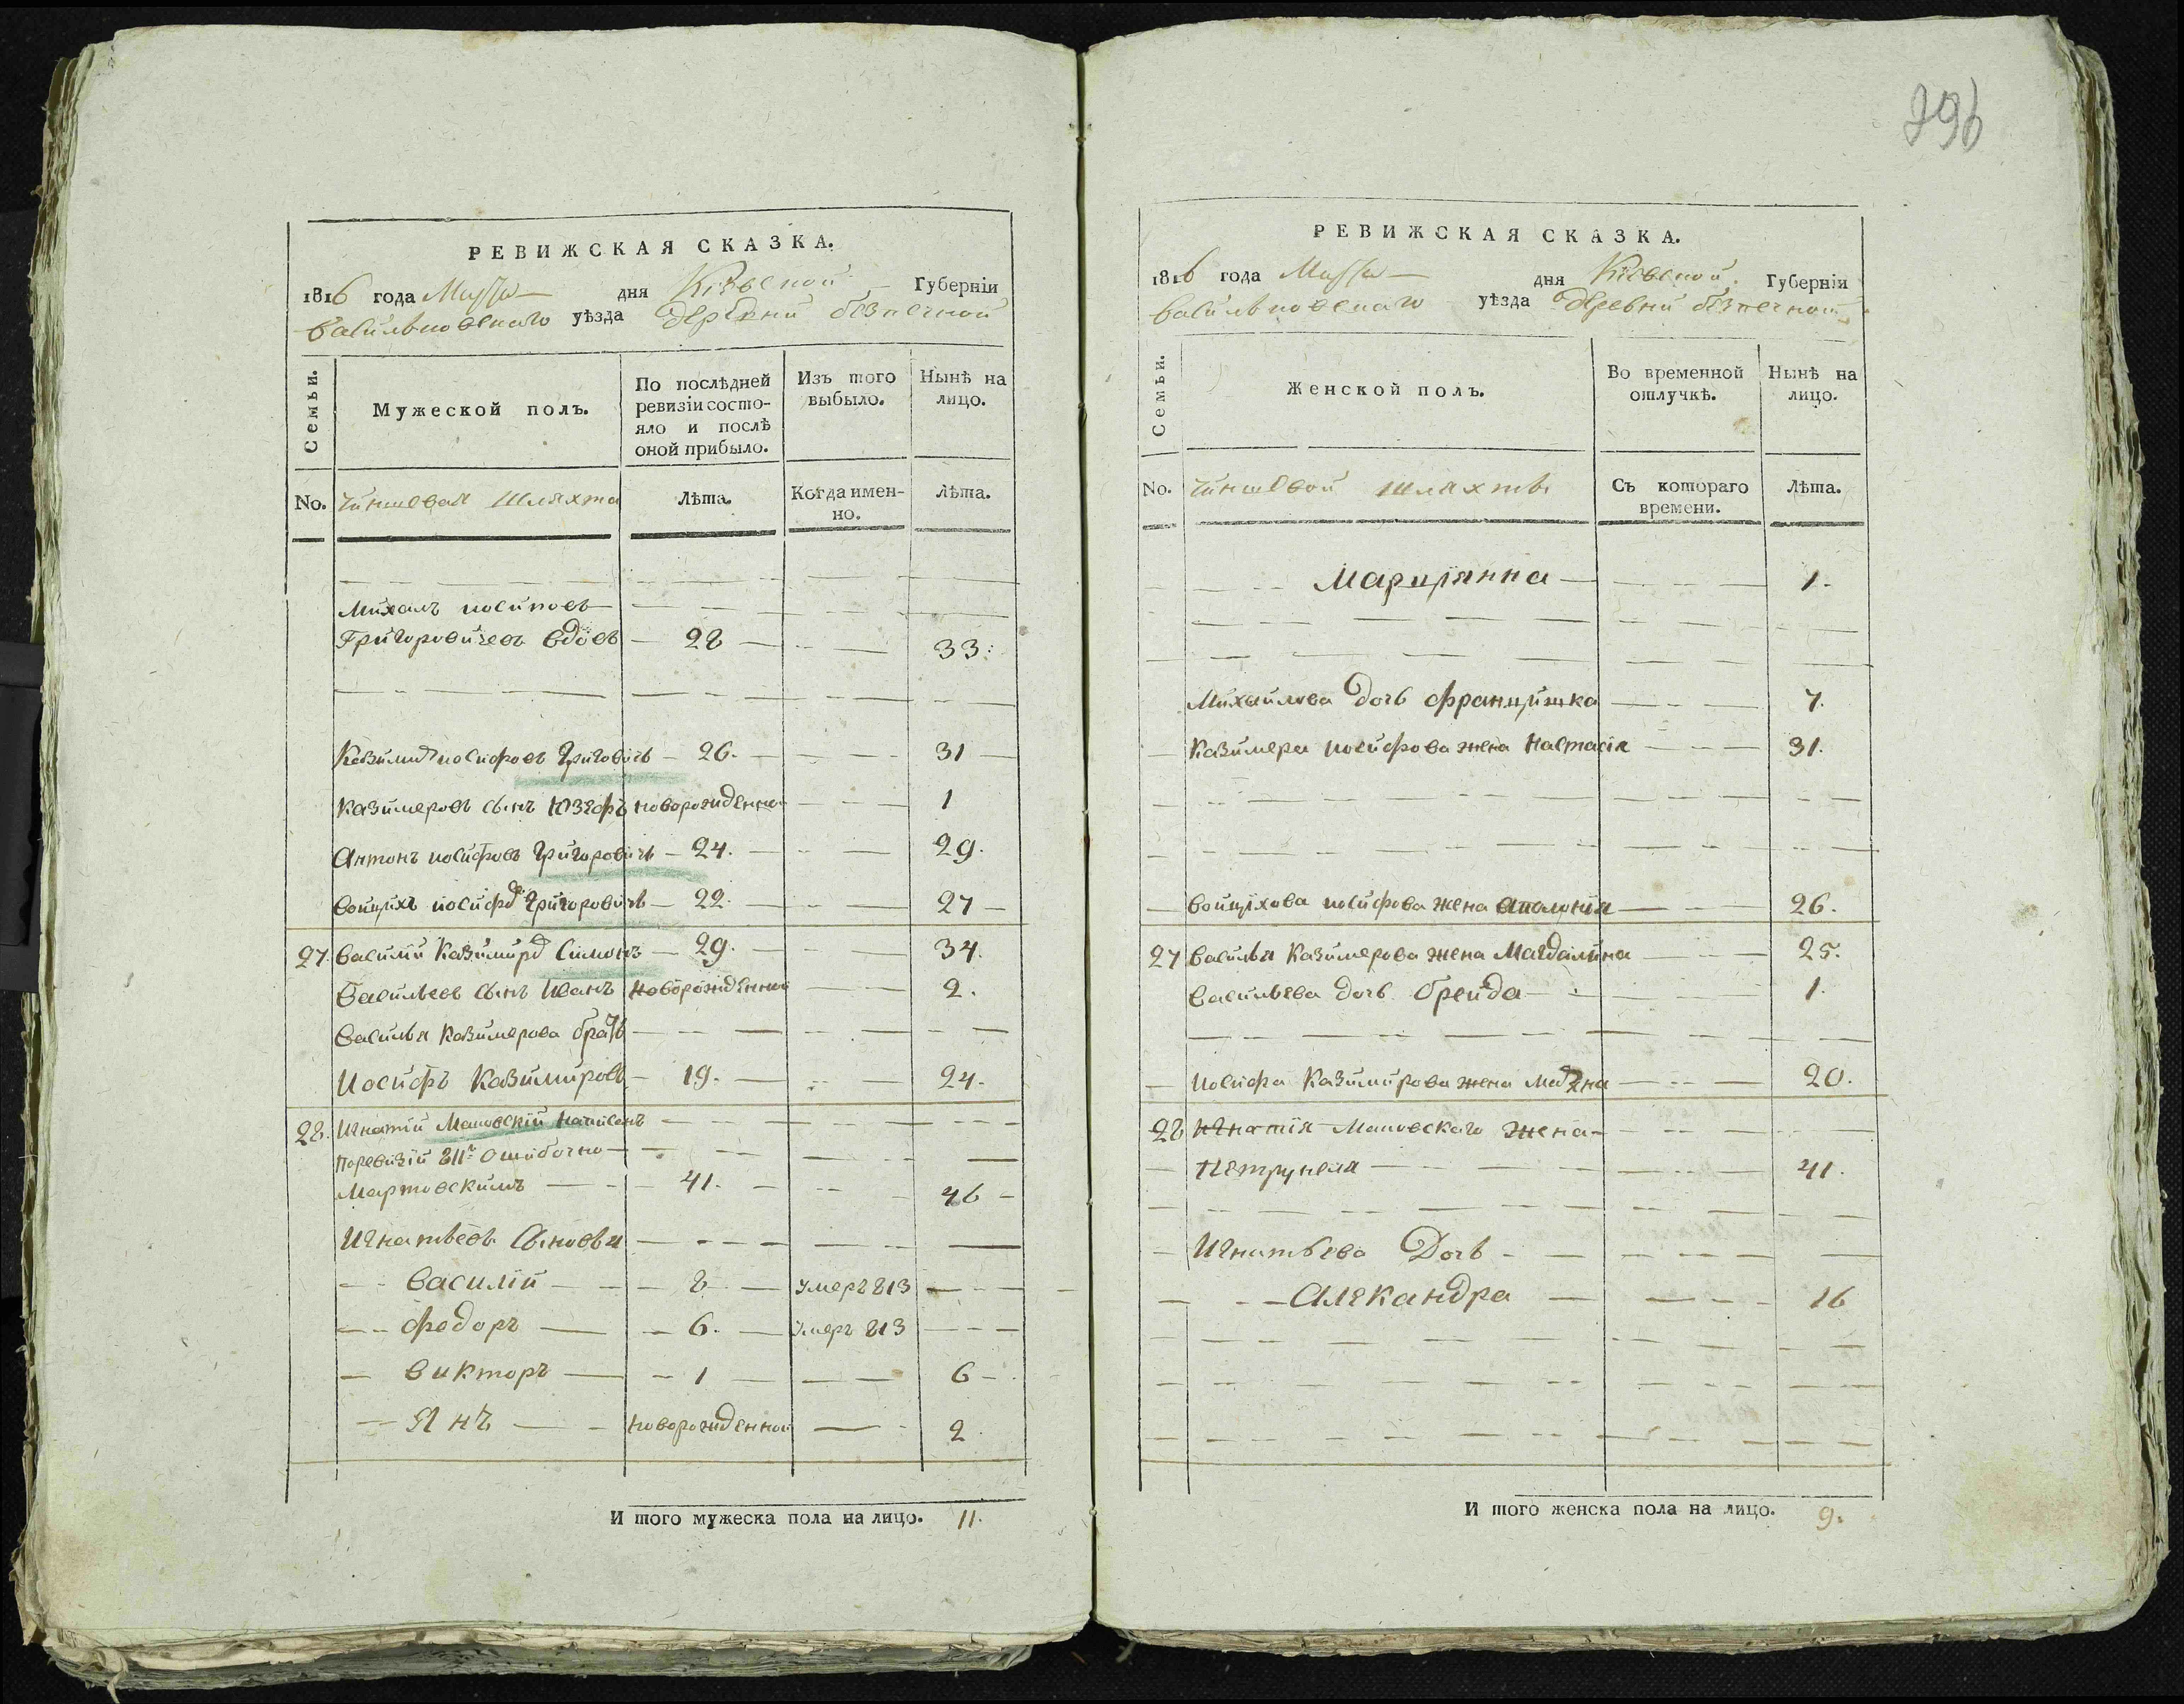 РЕВИЖСКАЯ СКАЗКА.
1816 года Марта дня Кіевской Губерніи
Васильковскаго уѣзда деревни безпечной
Семьи.
Мужеской полъ.
По послѣдней ревизіи состо-
яло и послѣ
оной прибыло.
Изъ того
выбыло.
Нынѣ на
лицо.
No. Чиншевая шляхта Лѣта. Когда имен-
но. Лѣта.
Михалъ иосифовъ
Григоровичевъ вдовъ 28 33
Казимиръ иосифовъ Григовичъ 26. 31
Казимеровъ сынъ Юзефъ новорожденной 1
Антонъ иосифовъ Григоровичъ 24. 29.
Войцѣхъ иосифо Григоровичъ 22. 27
27. Василій Казимиро Симонъ 29. 34.
Васильевъ сынъ Иванъ новорожденной 2.
Василья Казимерова братъ
Иосифъ Казимировъ 19. 24.
28. Игнатій Мановскій написанъ
поревизіи 811г ошибочно
Мартовскимъ 41. 46
Игнатьевъ Сыновья
Василій 8 умеръ 813
Федоръ 6. умеръ 813
Викторъ 1 6
Янъ новорожденной 2.
И того мужеска пола на лицо. 11.
296
РЕВИЖСКАЯ СКАЗКА.
1816 года Марта дня Кіевской Губерніи
Васильковскаго уѣзда деревни безпечной
Семьи.
Женской полъ.
Во временной
отлучкѣ.
Нынѣ на
лицо.
No. Чиншевой шляхты Съ котораго
времени. Лѣта.
Марціянна 1.
Михайлова дочь Францишка 7.
Казимера иосифова жена Настасія 31.
Войцѣхова иосифова жена Аполонія 26.
27 Василья Казимерова жена Магдалина 25.
Васильева дочь брейда 1.
Иосифа Казимирова жена 20.
28 Игнатія Мановскаго жена
Петрунеля 41.
Игнатьева Дочь
Алекандра 16
И того женска пола на лицо. 9.